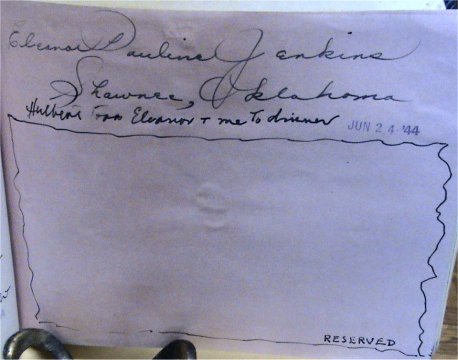 Eleanor Pauline Jenkins
Shawnee, Oklahoma
Hulberts took Eleanor + me to dinner JUN 24 '44
RESERVED